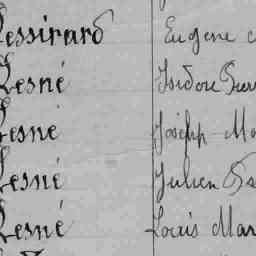 Lessirard Eugene
Lesné Isidore
Lesné Joseph
Lesné Julien
Lesné Louis